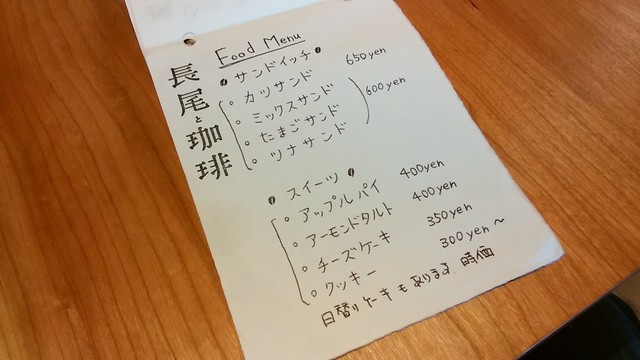 長尾と珈琲
Food Menu
サンドイッチ
カツサンド 650yen
ミックスサンド
たまごサンド 600yen
ツナサンド
スイーツ
アップルパイ 400yen
アーモンドタルト 400yen
チーズケーキ 350yen
クッキー 300yen～
日替りケーキもあります。時価